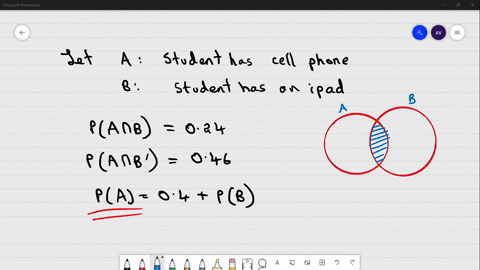 Microsoft Whiteboard
AV
Let A: Student has cell phone
B: Student has an ipad
P(A∩B) = 0.24
P(A∩B') = 0.46
P(A) = 0.4 + P(B)
A
B